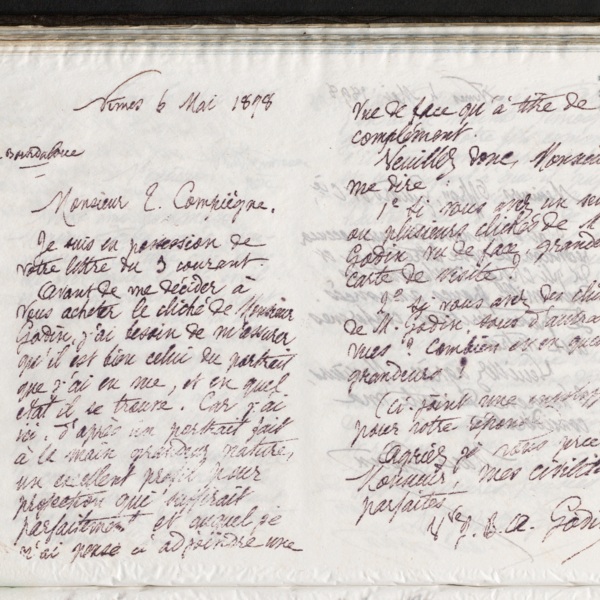 Nîmes 6 Mai 1898
Monsieur E. Compiègne.
Je suis en possession de
votre lettre du 3 courant.
Avant de me décider à
vous acheter le cliché de Monsieur
Godin, j'ai besoin de m'assurer
qu'il est bien celui du portrait
que j'ai en vue, et en quel
état il se trouve. Car j'ai
ici, d'après un portrait fait
à la main grandeur nature,
un excellent profil pour
projection qui suffirait
parfaitement et auquel je
n'ai pensé à adjoindre une
vue de face qu'à titre de
complément
Veuillez donc, Monsieu
me dire
1º Si vous avez un
ou plusieurs clichés de M
Godin vu de face, grande
carte de visite ?
2º Si vous avez des
de M. Godin sous d'autr
vues ? Combien en en que
grandeurs
Ci-joint une
pour votre
Agréez je vous prie
Monsieur, mes civilité
parfaites
Vve J. B. A. Godin